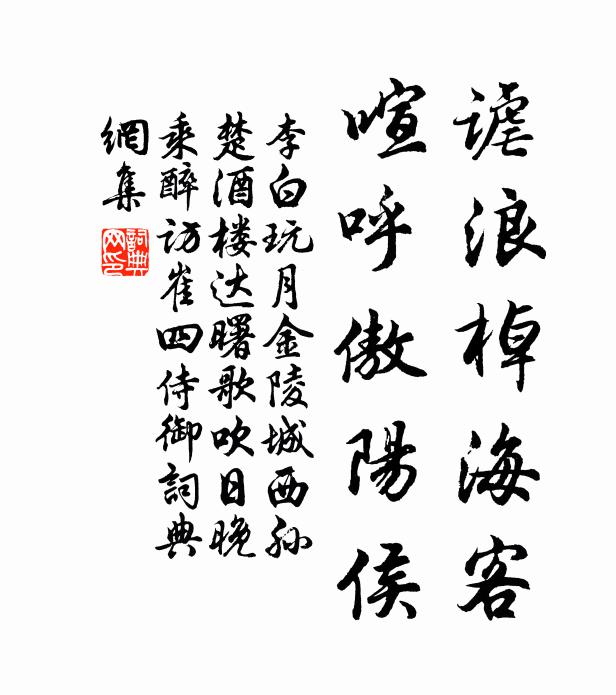 謔浪棹海客
喧呼傲陽侯
李白玩月金陵城西孙
楚酒楼达曙歌吹日晚
乘醉访崔四侍御詞典
網集
詞典網印